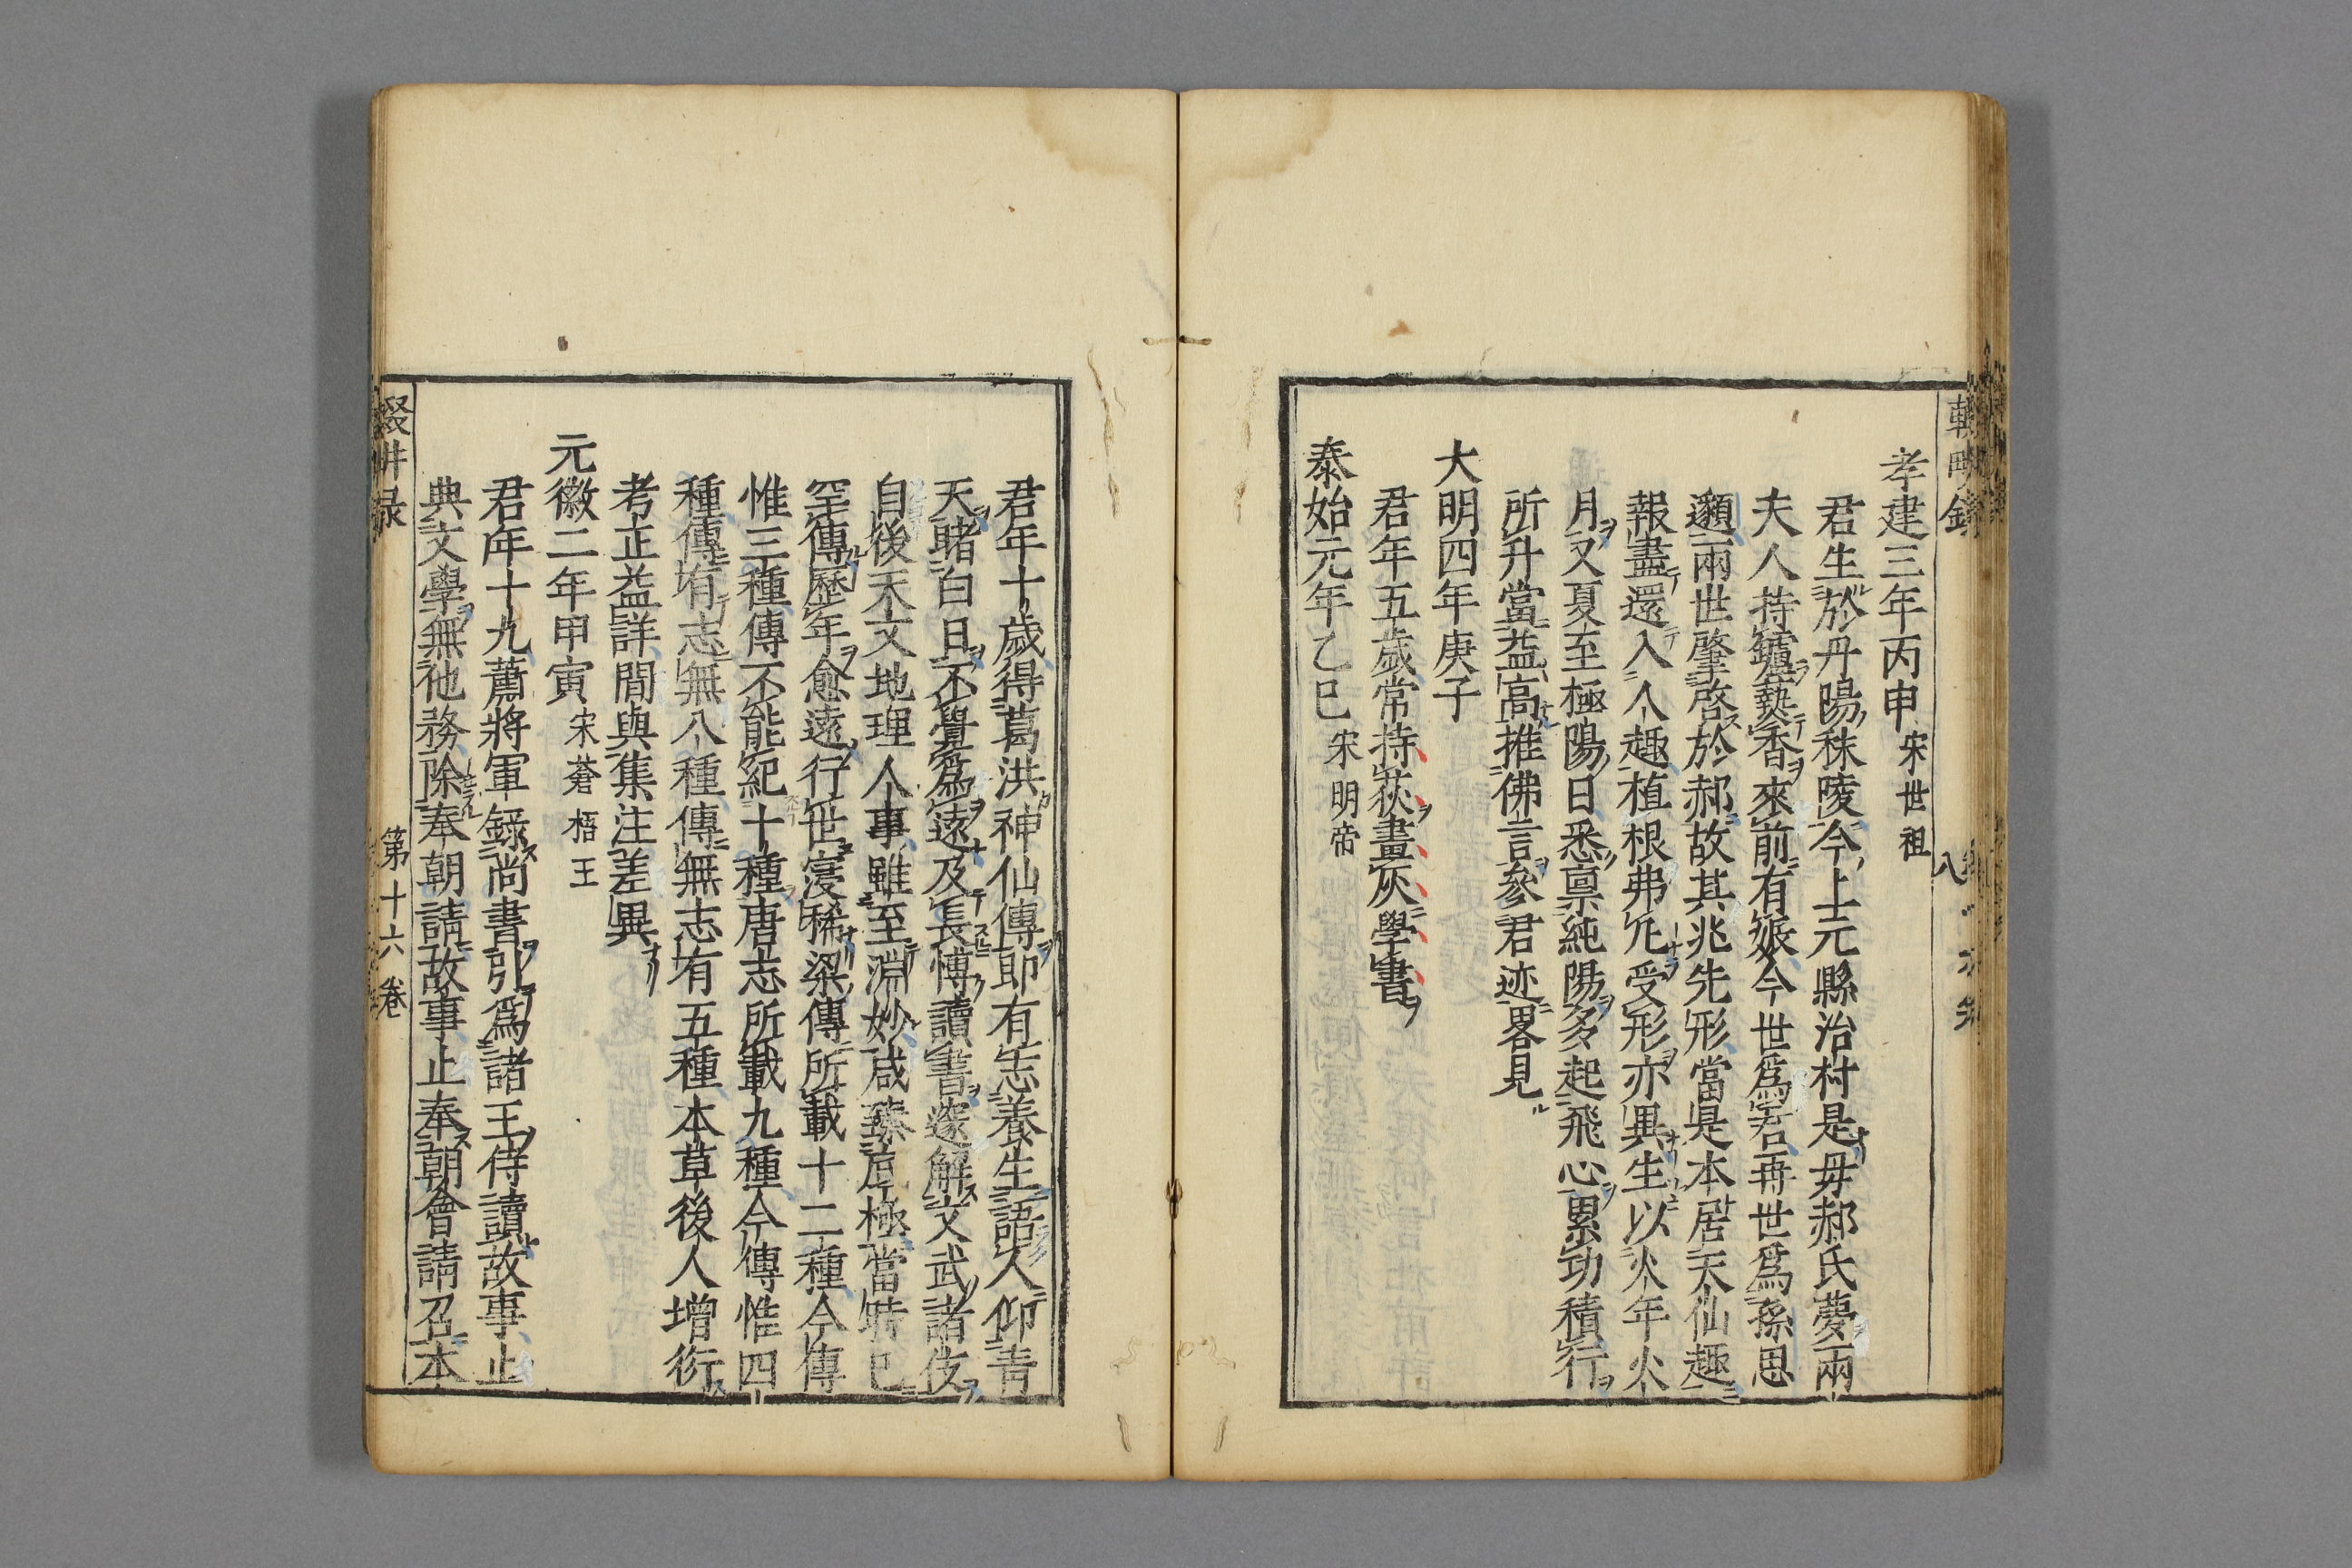 孝建三年丙申宋世祖
君生於丹陽秣陵今上元縣治村是毋郝氏夢兩
夫人持鑪爇香來前有娠今世爲君再世爲孫思
邈兩世肇啓於郝故其兆先形當是本居天仙趣
報盡還入人趣植根弗凡受形亦異生以火年火
月又夏至極陽日悉稟純陽多起飛心累功積行
所升當益高推佛言參君迹畧見
大明四年庚子
君年五歲常持荻畫灰學書
泰始元年乙巳宋明帝
君年十歲得葛洪神仙傳卽有志養生語人仰青
天睹白日不覺爲遠及長博讀書遂解文武諸伎
自後天文地理人事雖至淵妙咸臻底極當時已
罕傳歷年愈遠行世寖稀梁傳所載十二種今傳
惟三種傳不能紀十種唐志所載九種今傳惟四
種傳有志無八種傳無志有五種本草後人增衍
考正益詳間與集注差異
元徽二年甲寅宋蒼梧王
君年十九蕭將軍錄尚書引爲諸王侍讀故事止
典文學無他務除奉朝請故事止奉朝會請召本
第十六卷